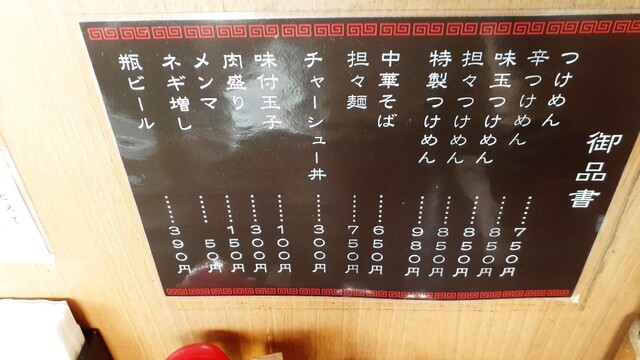 御品書
つけめん……７５０円
辛つけめん……８５０円
味玉つけめん……８５０円
担々つけめん……８５０円
特製つけめん……９８０円
中華そば……６５０円
担々麺……７５０円
チャーシュー丼……３００円
味付玉子……１００円
肉盛り……３００円
メンマ……１５０円
ネギ増し……５０円
瓶ビール……３９０円